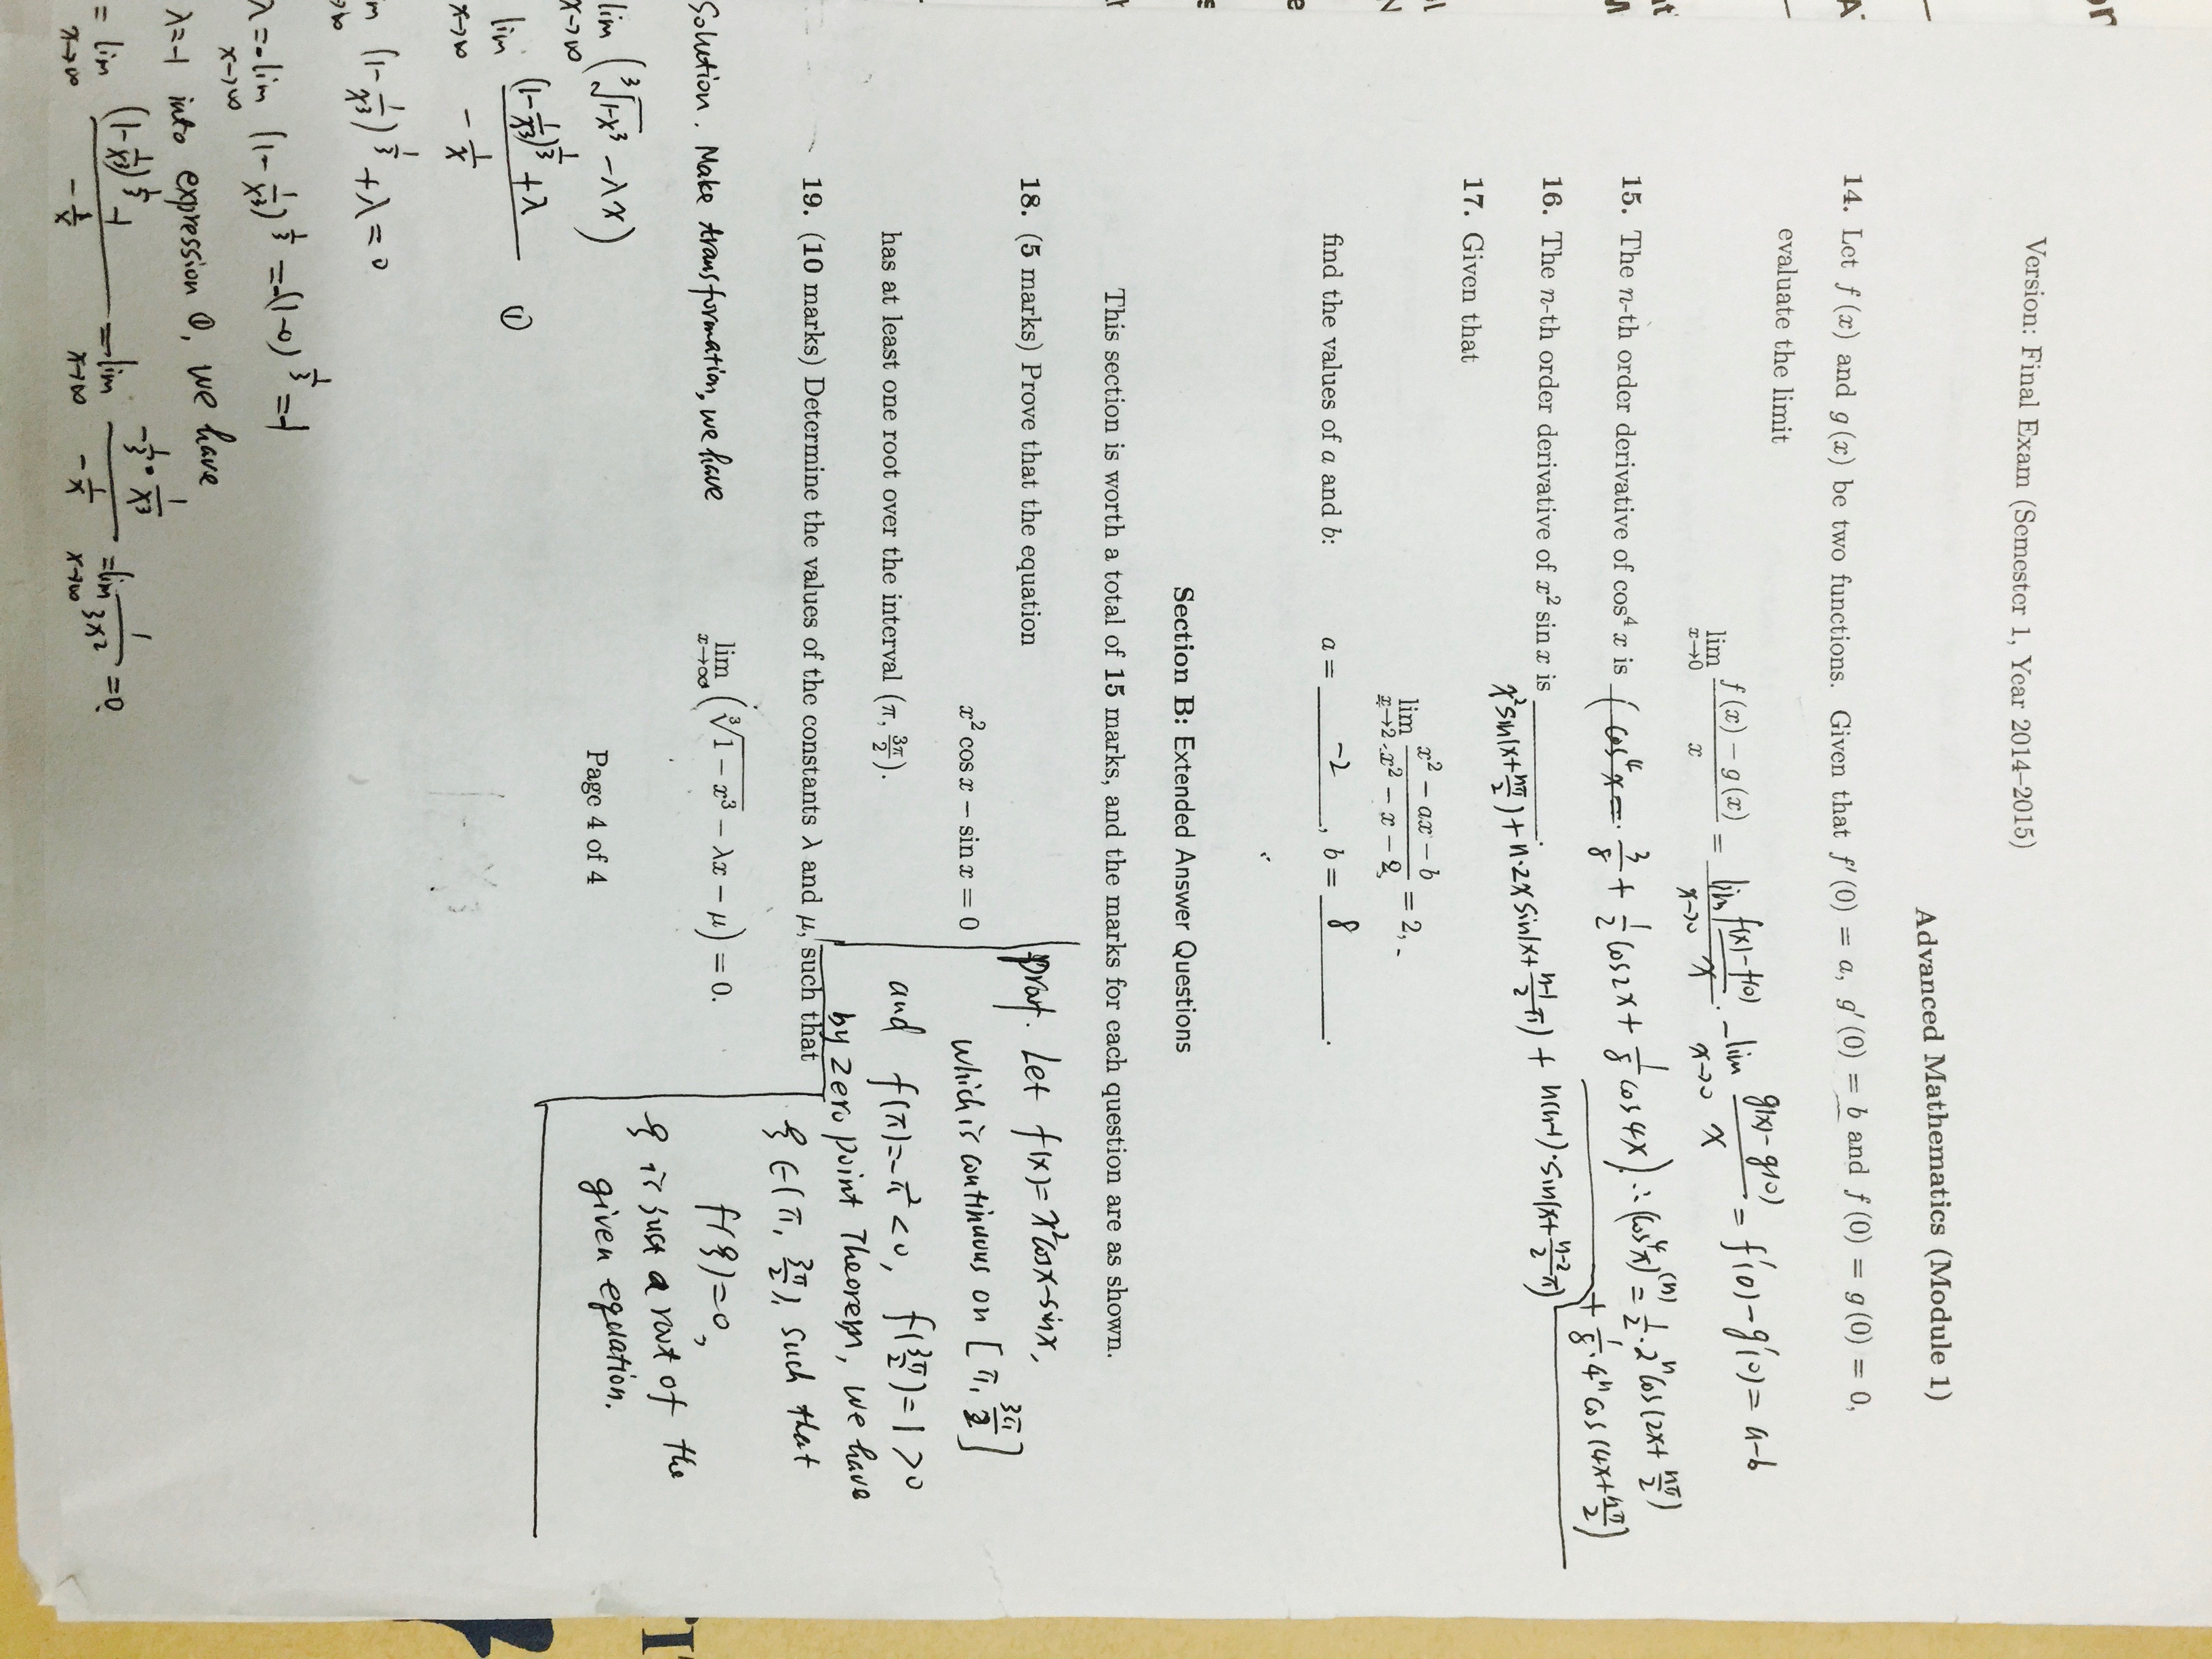 Version: Final Exam (Semester 1, Year 2014–2015)
Advanced Mathematics (Module 1)
14. Let f (x) and g (x) be two functions. Given that f′ (0) = a, g′ (0) = b and f (0) = g (0) = 0,
evaluate the limit
lim x→0 (f (x) − g (x))/x = lim x→0 (f(x)-f(0))/x - lim x→0 (g(x)-g(0))/x = f′(0)-g′(0) = a-b
15. The n-th order derivative of cos⁴ x is (cos⁴x = 3/8 + 1/2 cos2x + 1/8 cos4x) ∴ (cos⁴x)⁽ⁿ⁾ = 1/2 · 2ⁿ cos(2x + nπ/2)
+ 1/8 · 4ⁿ cos(4x + nπ/2)
16. The n-th order derivative of x² sin x is ________.
x² sin(x + nπ/2) + n·2x sin(x + (n-1)/2 π) + n(n-1)·sin(x + (n-2)/2 π)
17. Given that
lim x→2 (x² − ax − b)/(x² − x − 2) = 2,
find the values of a and b: a = -2, b = 8.
Section B: Extended Answer Questions
This section is worth a total of 15 marks, and the marks for each question are as shown.
18. (5 marks) Prove that the equation
x² cos x − sin x = 0
has at least one root over the interval (π, 3π/2).
proof. Let f(x) = x²cosx-sinx,
which is continuous on [π, 3π/2]
and f(π) = -π² < 0, f(3π/2) = 1 > 0
by zero point Theorem, we have
ξ ∈ (π, 3π/2), such that
f(ξ) = 0,
ξ is just a root of the
given equation.
19. (10 marks) Determine the values of the constants λ and μ, such that
lim x→∞ (∛(1 − x³) − λx − μ) = 0.
Solution. Make transformation, we have
lim x→∞ (∛(1-x³) - λx)
lim x→∞ ((1 - 1/x³)^(1/3) + λ)/(-1/x) ①
(1 - 1/x³)^(1/3) + λ = 0
λ = -lim x→∞ (1 - 1/x³)^(1/3) = -(1-0)^(1/3) = -1
λ = -1 into expression ①, we have
= lim x→∞ ((1 - 1/x³)^(1/3) - 1)/(-1/x) = lim x→∞ (-1/3 · 1/x³)/(-1/x) = lim x→∞ 1/(3x²) = 0.
Page 4 of 4